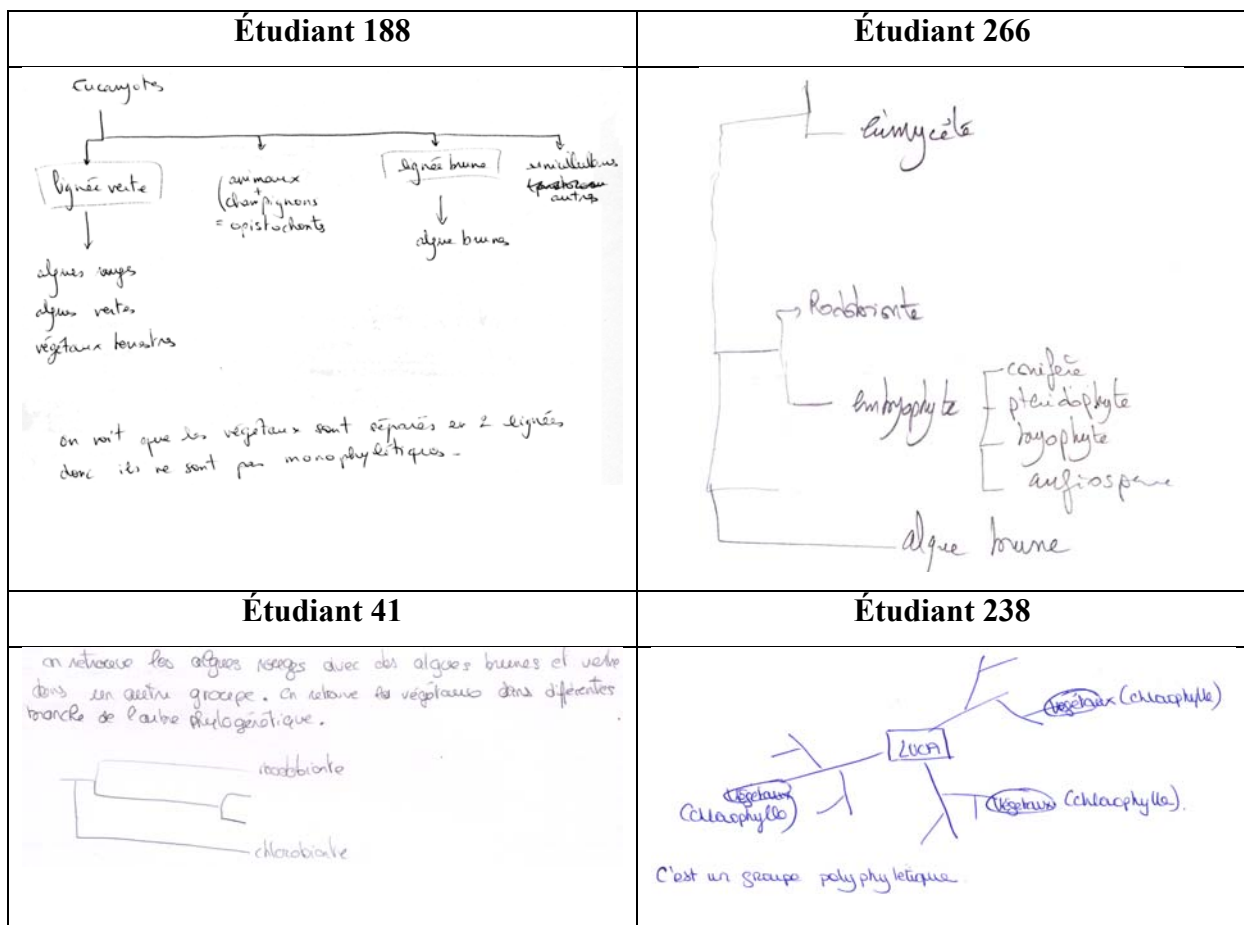 Étudiant 188
Eucaryotes
lignée verte
animaux
+
champignons
= opistochonts
lignée brune
unicellulaires
autres
algues rouges
algues vertes
végétaux terrestres
algue brunes
on voit que les végétaux sont séparés en 2 lignées
donc ils ne sont pas monophylétiques.
Étudiant 266
eumycète
Rodobionte
embryophyte
conifère
pteridophyte
bryophyte
angiosperme
algue brune
Étudiant 41
on retrouve les algues rouges avec des algues brunes et verte
dans un autre groupe. On retrouve les végétaux dans différentes
branche de l'arbre phylogénétique.
rhodobionte
chlorobionte
Étudiant 238
Végétaux (chlorophylle)
LUCA
Végétaux
(chlorophylle)
Végétaux (chlorophylle).
C'est un groupe polyphyletique.